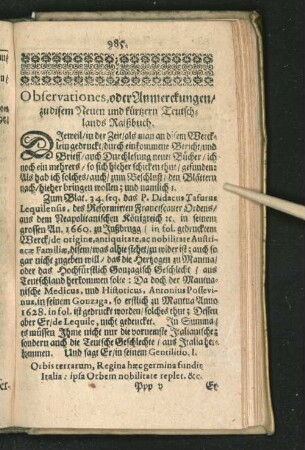 985.
Observationes, oder Anmerckungen/
zu disem Neuen und kürtzern Teutsch-
lands Raißbuch.
DJerweil/ in der Zeit/ als man an disem Werck-
lein gedruckt/ durch einkommene Bericht/ und
Brieff/ auch Durchlesung neuer Bücher/ ich
noch ein mehrers/ so sich hieher schicken thut/ gefunden:
Als hab ich solches/ auch/ zum Beschluß/ den Blättern
nach/ hieher bringen wollen; und namlich 1.
Zum Blat. 34. seq. das P. Didacus Tafurus
Lequilensis, des Reformirten Franciscaner Ordens/
aus dem Neapolitanischen Königreich ꝛc. in seinem
grossen An. 1660. zu Jnßbrugg/ in fol. gedrucktem
Werck/ de origine, antiquitate, ac nobilitate Austri-
acæ Familiæ, disem/ was alhie stehet/ zu wider ist; auch so
gar nicht zugeben will/ das die Hertzogen zu Mantua/
oder das Hochfürstlich Gonzagisch Geschlecht/ aus
Teutschland herkommen solle: Da doch der Mantua-
nische Medicus, und Historicus, Antonius Possevi-
nus, in seinem Gonzaga, so erstlich zu Mantua Anno
1628. in fol. ist gedruckt worden/ solches thut; Dessen
aber Er/ de Lequile, nicht gedencket. Jn Summa/
es müssen Jhme nicht nur die vornemste Jtalianische;
sondern auch die Teutsche Geschlechte/ aus Jtalia her-
kommen. Und sagt Er/ in seinem Gentilitio, l.
Orbis terrarum, Regina hæc germina fundit
Italia: ipsa Orbem nobilitate replet. &c.
Ppp v Er